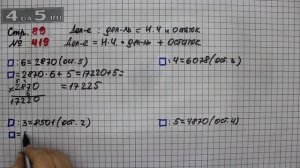 4📖5.RU
Стр. 80 Дел-е : дел-ль = Н.Ч и остаток
№ 419 Дел-е = Н.Ч • дел-ль + остаток
□ : 6 = 2870 (ост. 5)
□ : 4 = 6078 (ост. 3)
□ = 2870 • 6 + 5 = 17220 + 5 =
= 17225
5 4
× 2870
6
17220
□ : 3 = 8501 (ост. 2)
□ : 5 = 4870 (ост. 4)
□ =